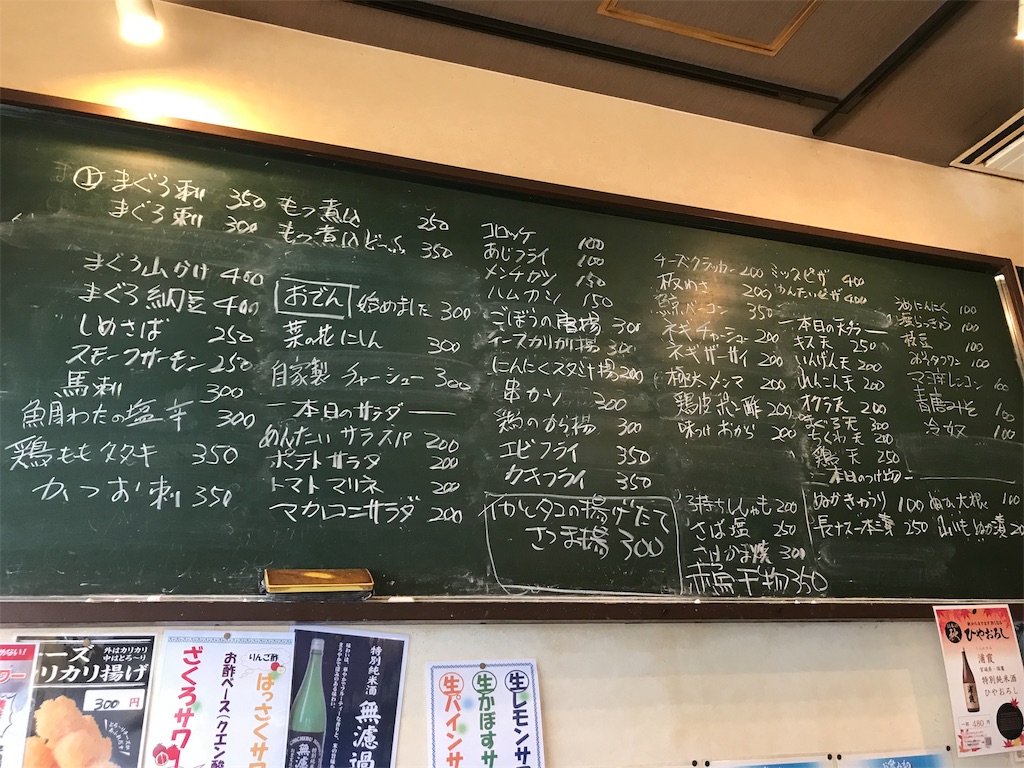 上 まぐろ刺 350
まぐろ刺 300
まぐろ山かけ 400
まぐろ納豆 400
しめさば 250
スモークサーモン 250
馬刺 300
わたの塩辛 300
鶏ももタタキ 350
かつお刺 350
もつ煮込 250
もつ煮込どーふ 350
おでん 始めました 300
菜の花にしん 300
自家製 チャーシュー 300
本日のサラダ
めんたいサラスパ 200
ポテトサラダ 200
トマトマリネ 200
マカロニサラダ 200
コロッケ 100
あじフライ 100
メンチカツ 150
ハムカツ 150
ごぼうの唐揚 300
チーズカリカリ揚 300
にんにくスタミナ揚 200
串かつ 200
鶏のから揚 300
エビフライ 350
カキフライ 350
イカとタコの揚げたて
さつま揚 300
チーズクラッカー 200
板わさ 200
鯨ベーコン 350
ネギチャーシュー 200
ネギザーサイ 200
極太メンマ 200
鶏皮ポン酢 200
味つけおから 200
子持ちししゃも 200
さば塩 250
300
赤魚干物 350
ミックスピザ 400
めんたいピザ 400
本日の天ぷら
キス天 250
いんげん天 200
れんこん天 200
オクラ天 200
まぐろ天 300
ちくわ天 200
鶏天 250
本日のつけ物
ぬかきゅうり 100
長ナス一本漬 250
大根 100
山いもぬか漬
にんにく 100
らっきょう 100
枝豆 100
100
100
100
冷奴 100
外はカリカリ
中はとろ〜り
ーズ
リカリ揚げ
300円
ざくろサワ
お酢ベース(クエン酸
りんご酢
はっさくサワ
特別純米酒
無濾過
生パインサ
生かぼすサ
生レモンサ
秋
ひやおろし
浦霞
宮城県・塩竈
特別純米酒
ひやおろし
480円